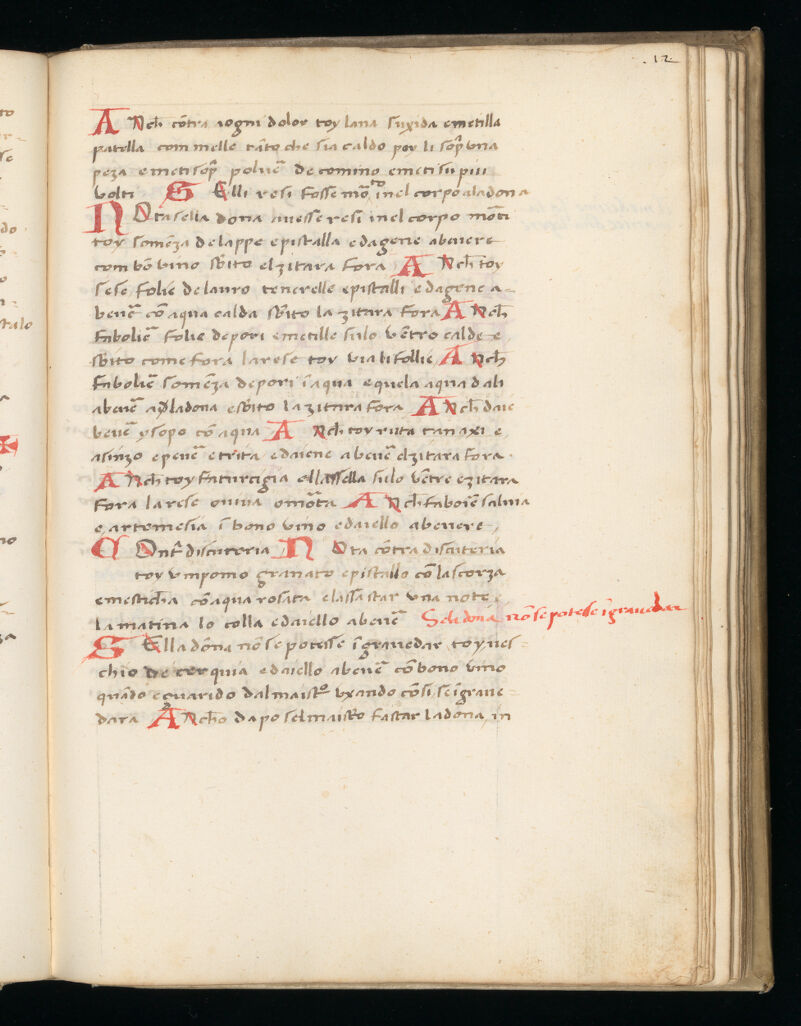 .12.
Anch cōtra aogni dolor toy lana suxida e metilla
patella com melle tāto che sia caldo poy li sop̄ una
peza e meti sop̄ polueȓ de comino e meti su piu
uolti Selli resi fosse mōto inel corpo ala dona
Nota sella dona auesse resi inel corpo mōti
toy somēza de lappe e pistalla e dagene a beuere
com bō uino sb̄ito el zitara fora Anch toy
sese folie de lauro tenerelle e pistalli e dagene a-
beueȓ cō aqua calda sb̄ito la zitara fora Anch
fa boliēȓ folie de pori e metille sulo uētro calde e
sb̄ito come fora la rese toy uia ti follie Anch
fa boliēȓ somēza de pori ī aqua e quela aqua dali
a beueȓ a la dona e sb̄ito la zitara fora Anch daie
beueȓ ysopo cō aqua Anch toy ruta tanaxi e
asinzo e peueȓ e trita e daiene a beueȓ el zitara fora.
Anch toy faturigia ellassella sulo uētre e zitara
fora la rese o uiua o mōta Anch fa boiēȓ saluia
e artemesia ī bono uino e daiello a beuere
Contȓ discuteria Nota cōtra discuteria
toy um pomo granato e pistallo cō la scorza
e mestichā cō aqua rosata e lassa star una note e
la matina lo colla e daiello a beueȓ Sela dona nō se potesse īgrauedar
Sella dōna nō se potesse īgrauedar toy ues-
chio de cerquia e daiello a beueȓ cō bono uino
quādo e guarido dal maistro uxando cō si se īgraue-
dara Ancho dapo sel maistro fa star la dona in